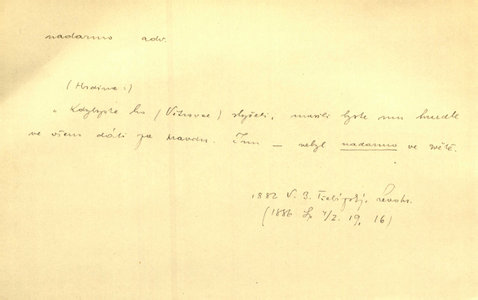 nadarmo adv.
(Hrdina:)
„Kdybyste ho (Vítovce) slyšeli, musili byste mu hned
ve všem dáti za pravdu. Inu – nebyl nadarmo ve světě.
1882 V. B. Třebízský,
(1886 4/2. 19, 16)